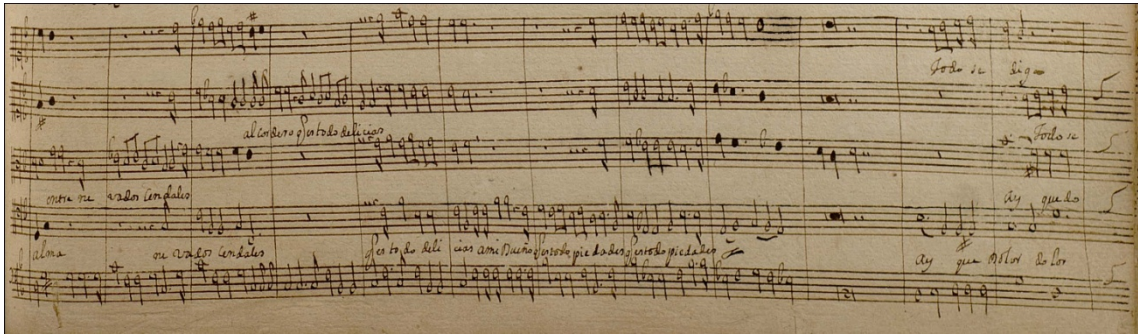 Todo se diga
al cordero q̃ es todo delicias Todo se
entre ne vados Cendales Ay que do
alma ne vados Cendales q̃ es todo delicias a mi Dueño q̃ es todo piedades q̃ es todo piedades Ay que dolor dolor